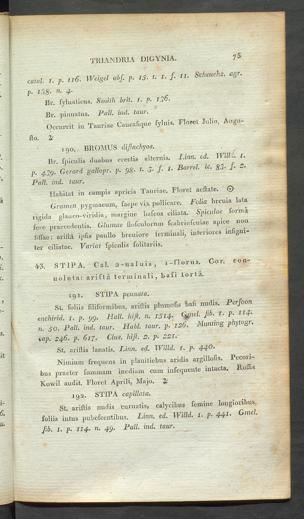 TRIANDRIA DIGYNIA. 75
catal. 1. p. 116. Weigel obs. p. 15. t. 1. f. 11. Scheuchz. agr.
p. 158. n. 4.
Br. sylvaticus. Smith brit. 1. p. 136.
Br. pinnatus. Pall. ind. taur.
Occurrit in Tauriae Caucasique sylvis. Floret Julio, Augu-
sto. ♃
190. BROMUS distachyos.
Br. spiculis duabus erectis alternis. Linn. ed. Willd. 1.
p. 439. Gerard gallopr. p. 98. t. 3. f. 1. Barrel. ic. 83. f. 2.
Pall. ind. taur.
Habitat in campis apricis Tauriae. Floret aestate. ☉
Gramen pygmaeum, saepe vix pollicare. Folia brevia lata
rigida glauco-viridia, margine baseos ciliata. Spiculae formâ
fere praecedentis. Glumae flosculorum scabriusculae apice non
fissae: aristâ ipsis paullo breviore terminali, interiores insigni-
ter ciliatae. Variat spiculis solitariis.
43. STIPA. Cal. 2-valvis, 1-florus. Cor. con-
voluta: aristâ terminali, basi tortâ.
191. STIPA pennata.
St. foliis filiformibus, aristis plumosis basi nudis. Persoon
enchirid. 1. p. 99. Hall. hist. n. 1514. Gmel. sib. 1. p. 114.
n. 50. Pall. ind. taur. Habl. taur. p. 126. Munting phytogr.
cap. 246. p. 617. Clus. hist. 2. p. 221.
St. aristis lanatis. Linn. ed. Willd. 1. p. 440.
Nimium frequens in planitiebus aridis argillosis. Pecori-
bus praeter summam inediam cum insequente intacta. Russis
Kowil audit. Floret Aprili, Majo. ♃
192. STIPA capillata.
St. aristis nudis curvatis, calycibus semine longioribus,
foliis intus pubescentibus. Linn. ed. Willd. 1. p. 441. Gmel.
sib. 1. p. 114. n. 49. Pall. ind. taur.